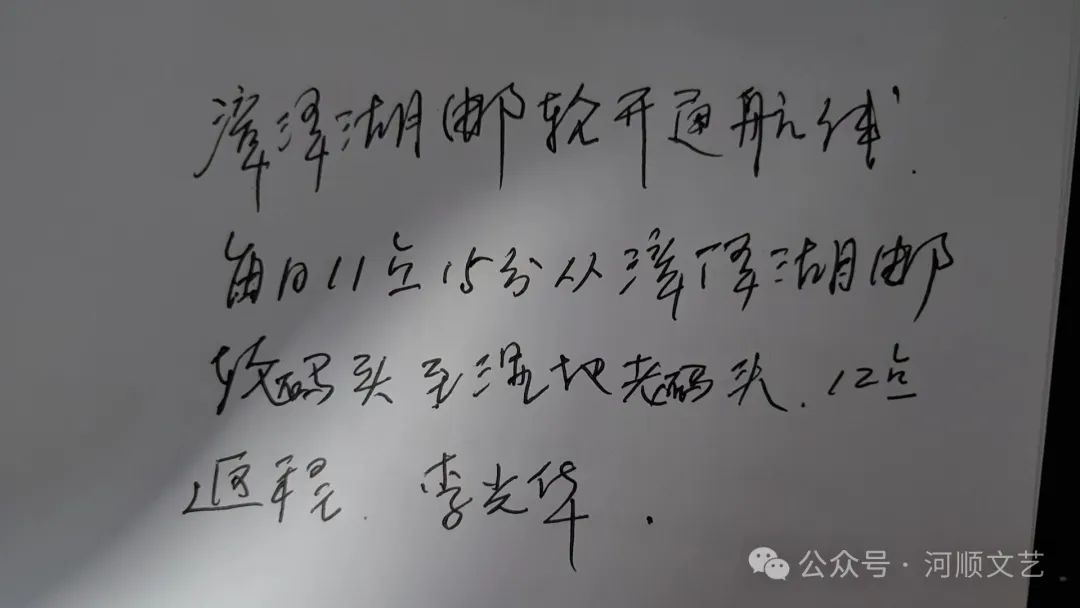 漳泽湖邮轮开通航线
每日11点15分从漳泽湖邮
轮码头至湿地老码头.12点
返程. 李光华.
公众号·河顺文艺